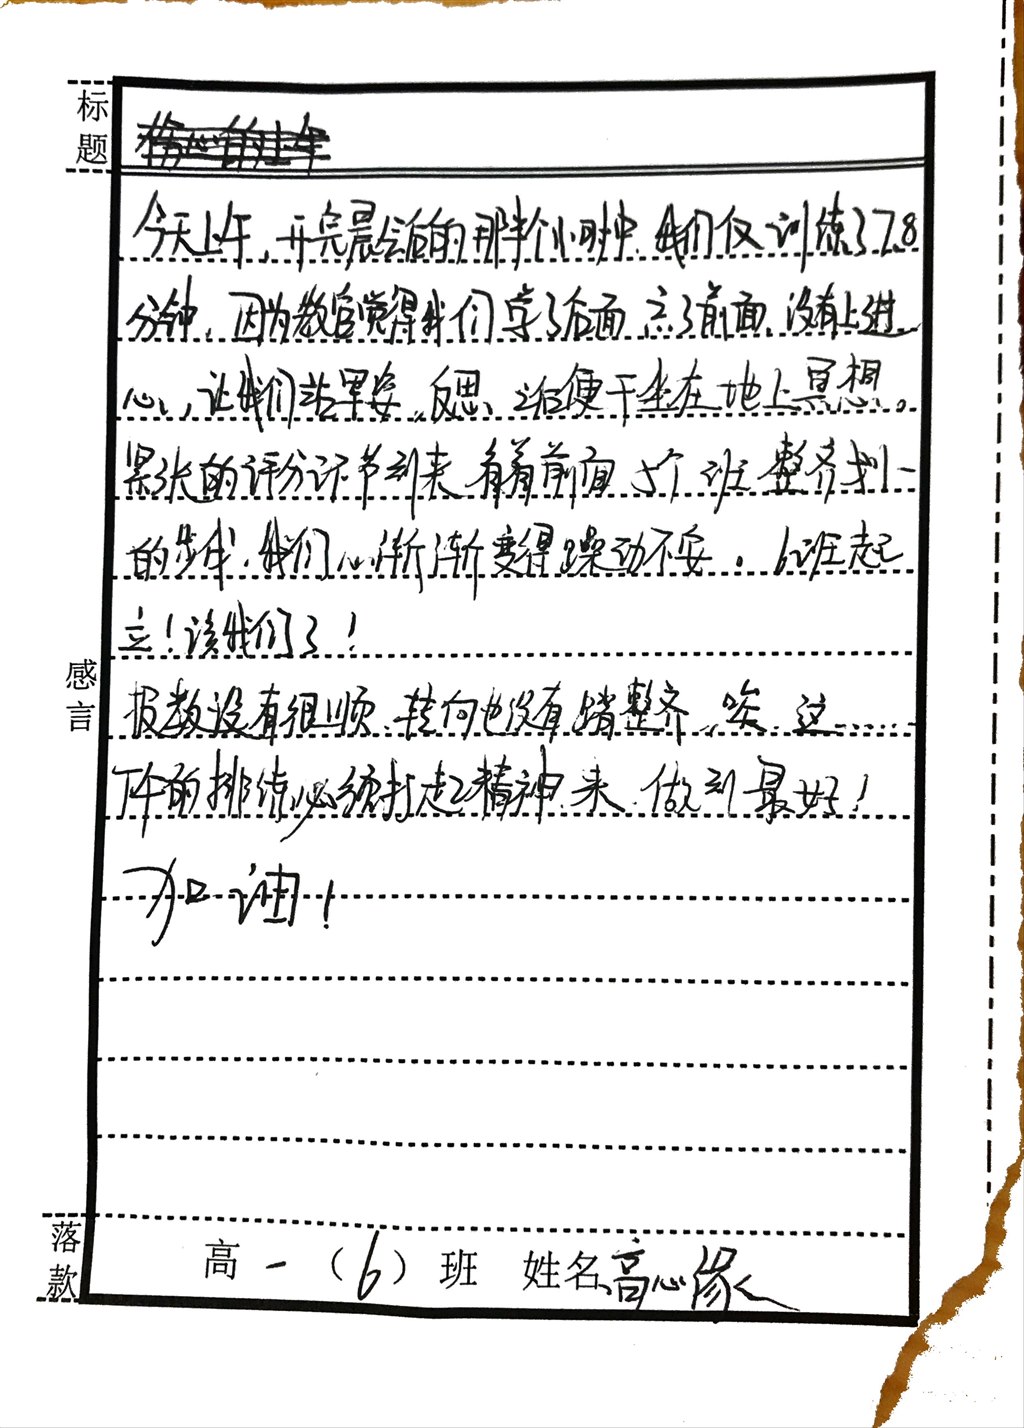 标题
今天上午，开完晨会后的那半个小时中，我们仅训练了7.8
分钟，因为教官觉得我们学了后面忘了前面，没有上进
心，让我们站军姿，反思，之后便干坐在地上冥想。
紧张的评分环节到来，看着前面5个班整齐划一
的步伐，我们心渐渐变得躁动不安。6班起
立！该我们了！
感言
报数没有很顺，转向也没有踏整齐，唉，这……
下午的排练必须打起精神来，做到最好！
加油！
落款
高一（6）班 姓名 高心